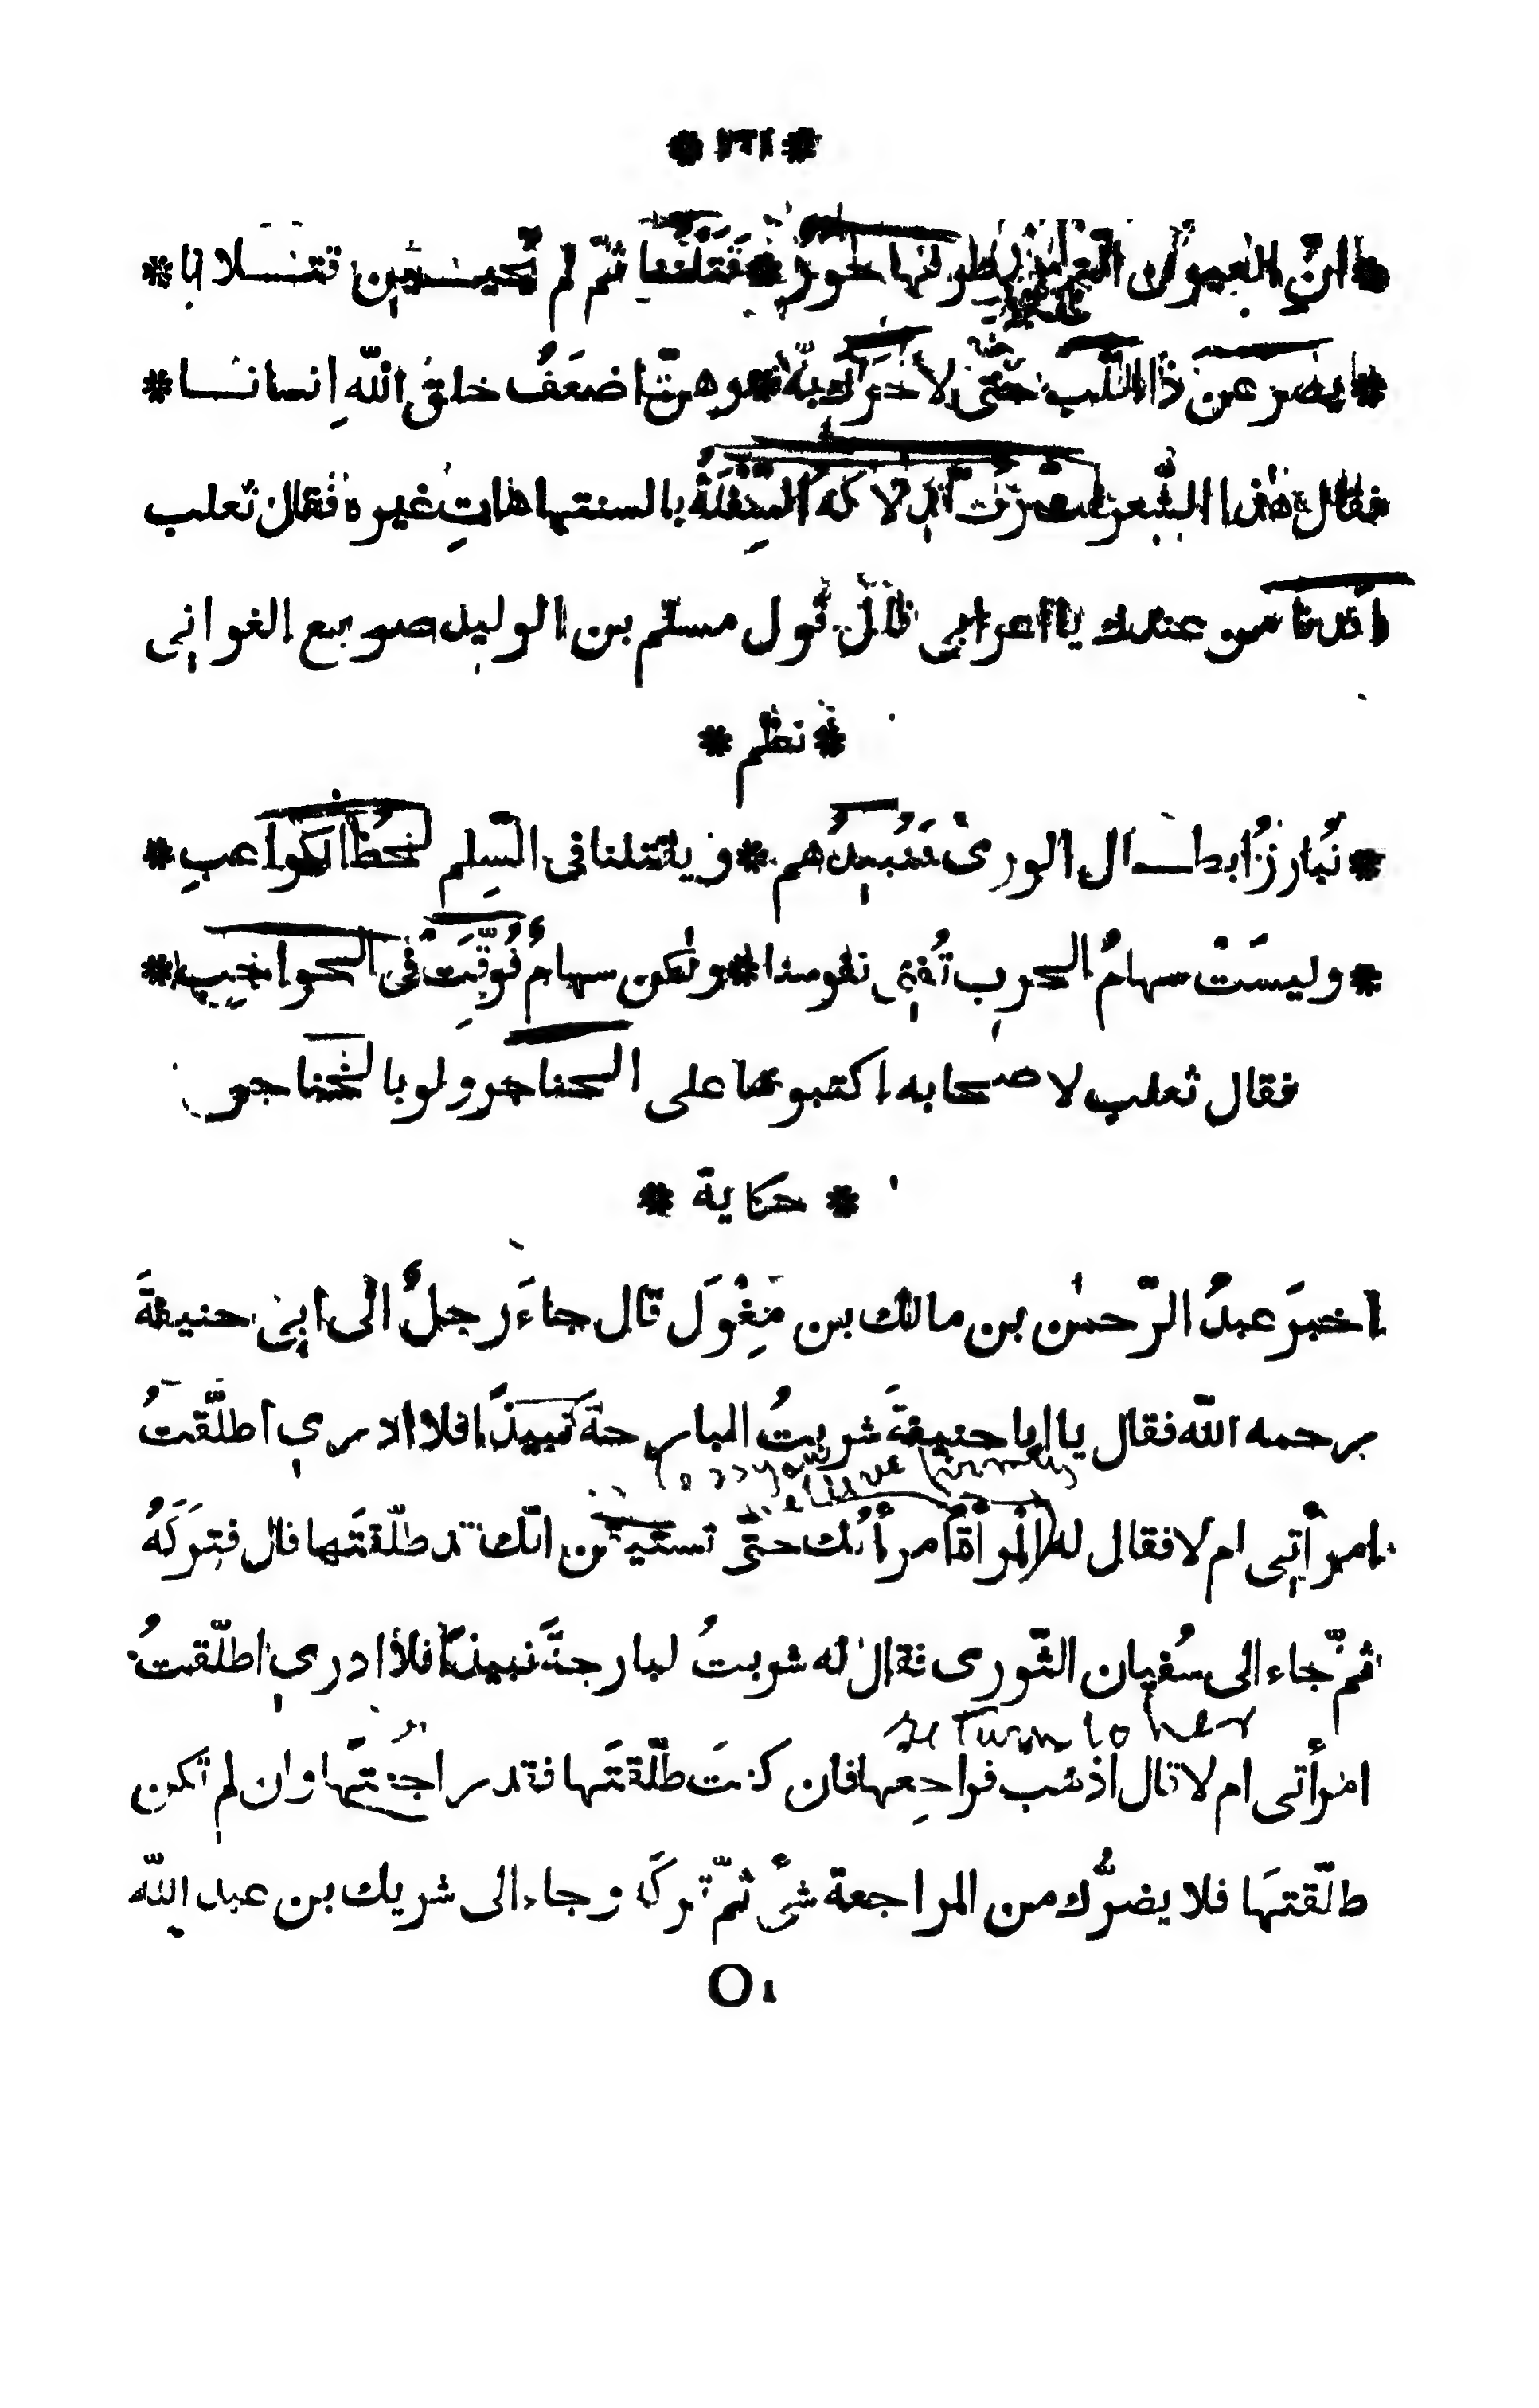 * ١٣١ *
* انّ العيون التى فى طرفها حَوَرٌ * قَتَلْنَنا ثمّ لم يُحيين قتلانا *
* يصرعن ذا اللّب حتى لا حَرَاك به * وهنّ اضعَفُ خلق اللّهِ إنسانا *
فقال هذا الشعر قد لاكه السَّفِلَةُ بالسنتها هاتِ غيره فقال ثعلب
افدنا من عندك يا اعرابى قال قول مسلم بن الوليد صريع الغوانى
* نظم *
* نُبارزُ ابطال الورى فَنُبيدُهم * ويقتلنا فى السّلِم لحظُ الكَواعبِ *
* وليسَتْ سهامُ الحرب تُفنى نفوسنا * ولكن سهامٌ فُوِّقَتْ فى الحواجبِ *
فقال ثعلب لاصحابه اكتبوها على الحناجر ولو بالخناجر
* حكاية *
اخبرَ عبدُ الرّحمٰن بن مالك بن مِغْوَل قال جاءَ رجلٌ الى ابى حنيفةَ
رحمه اللّه فقال يا ابا حنيفةَ شربتُ البارحةَ نبيذًا فلا ادرى اطلّقتُ
believe firmly
امرأتى ام لا فقال له المرأةُ امرأتك حتّى تستيقن انّك قد طلّقتَها قال فتركَهُ
ثمّ جاء الى سُفيان الثّورى فقال له شربتُ البارحةَ نبيذًا فلا ادرى اطلّقتُ
return to her
امرأتى ام لا قال اذهب فراجِعها فان كنتَ طلّقتَها فقد راجعتَها وان لم تكن
طلّقتهَا فلا يضرُّك من المراجعة شىٌٔ ثمّ تركَه وجاء الى شريك بن عبد اللّه
O ١